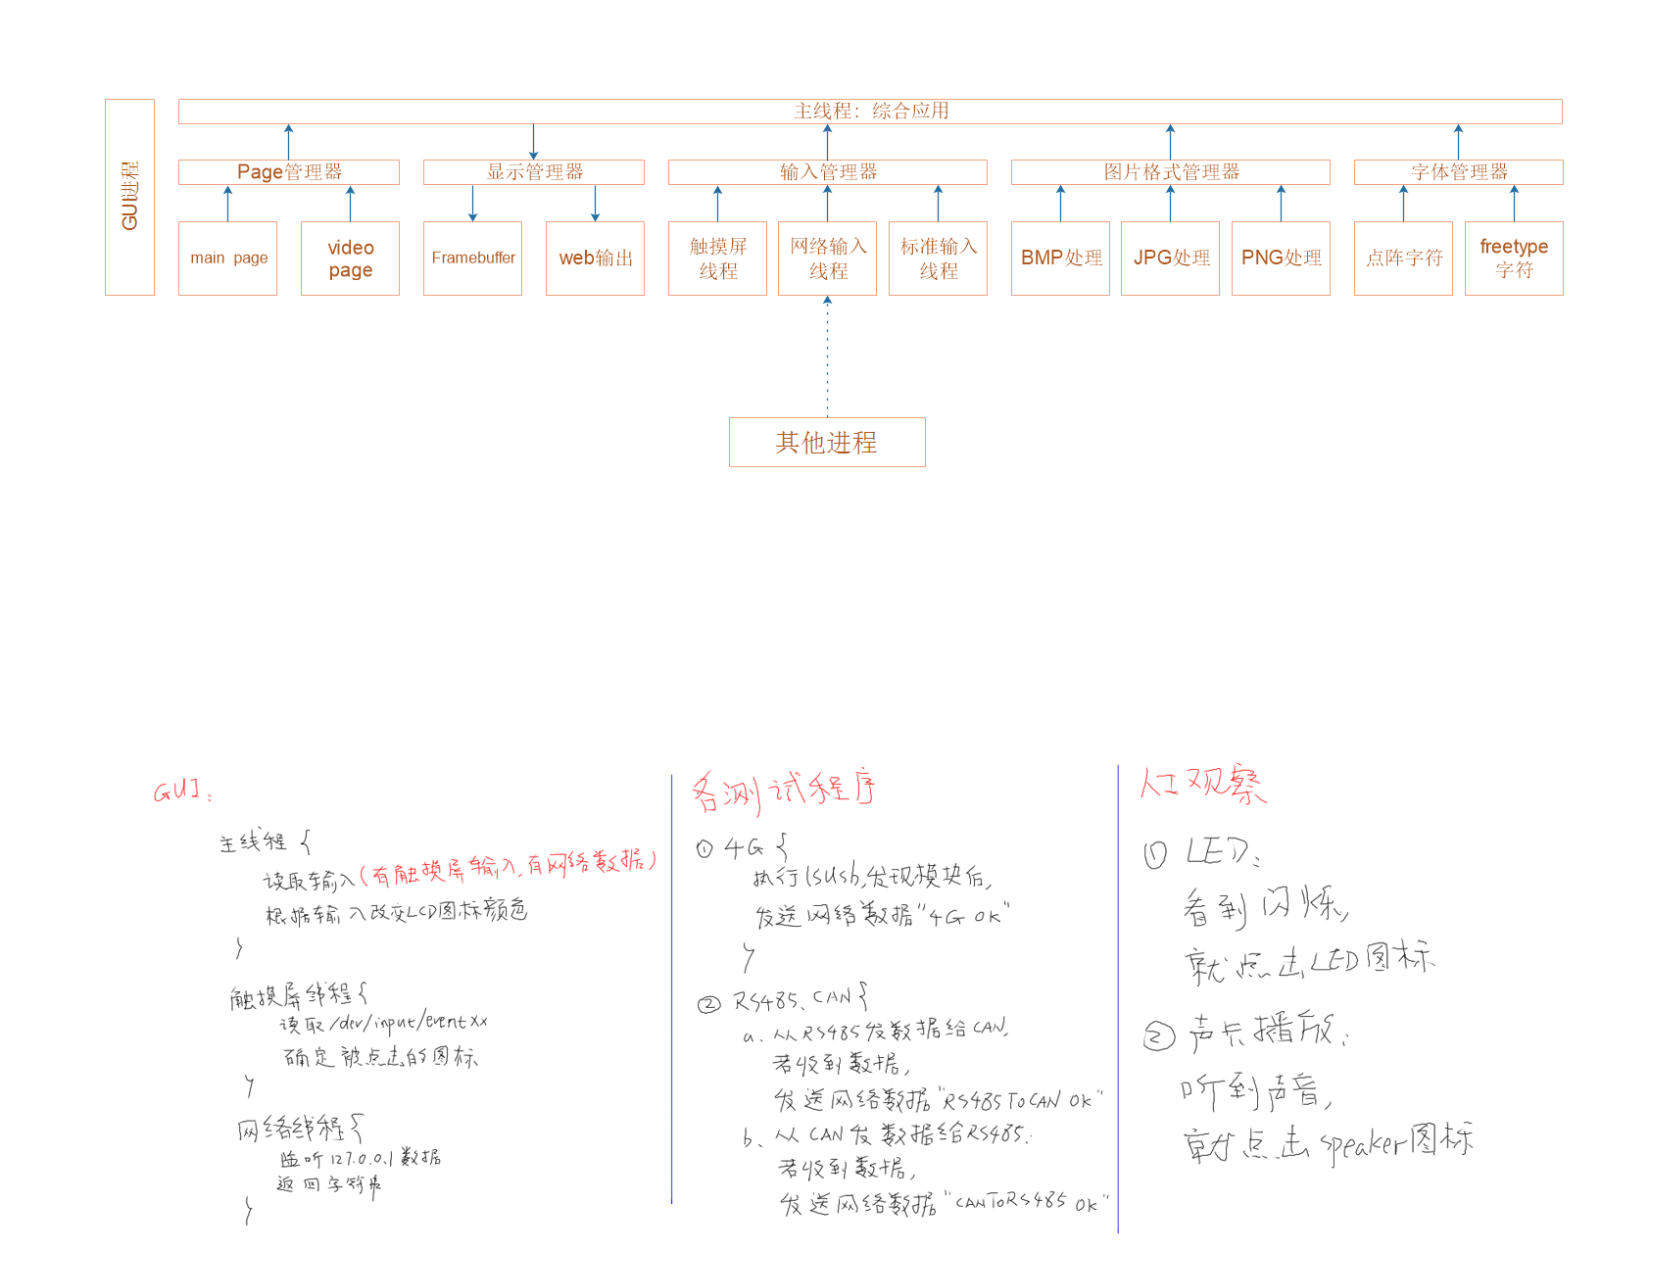 GUI进程
主线程：综合应用
Page管理器
显示管理器
输入管理器
图片格式管理器
字体管理器
main page
video
page
Framebuffer
web输出
触摸屏
线程
网络输入
线程
标准输入
线程
BMP处理
JPG处理
PNG处理
点阵字符
freetype
字符
其他进程
GUI:
主线程{
读取输入(有触摸屏输入,有网络数据)
根据输入改变LCD图标颜色
}
触摸屏线程{
读取/dev/input/eventxx
确定被点击的图标
}
网络线程{
监听127.0.0.1数据
返回字符串
}
各测试程序
① 4G{
执行lsusb,发现模块后,
发送网络数据"4G OK"
}
② RS485、CAN{
a. 从RS485发数据给CAN,
若收到数据,
发送网络数据"RS485ToCAN OK"
b、从CAN发数据给RS485.
若收到数据,
发送网络数据"CANToRS485 OK"
人工观察
① LED:
看到闪烁,
就点击LED图标
② 声卡播放:
听到声音,
就点击speaker图标